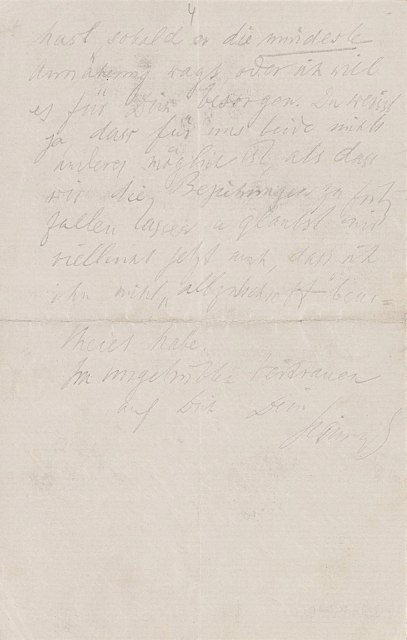 4
hast sobald er die mindeste
Annäherung wagt oder ich will
es für Dich besorgen. Du weisst
ja dass für uns beide nichts
anderes möglich ist, als dass
wir die Beziehungen zu Fritz
fallen lassen u glaubst mir
vielleicht jetzt auch, dass ich
ihn nicht „allzuschroff" beur=
theilt habe.
In ungetrübtem Vertrauen
auf Dich Dein